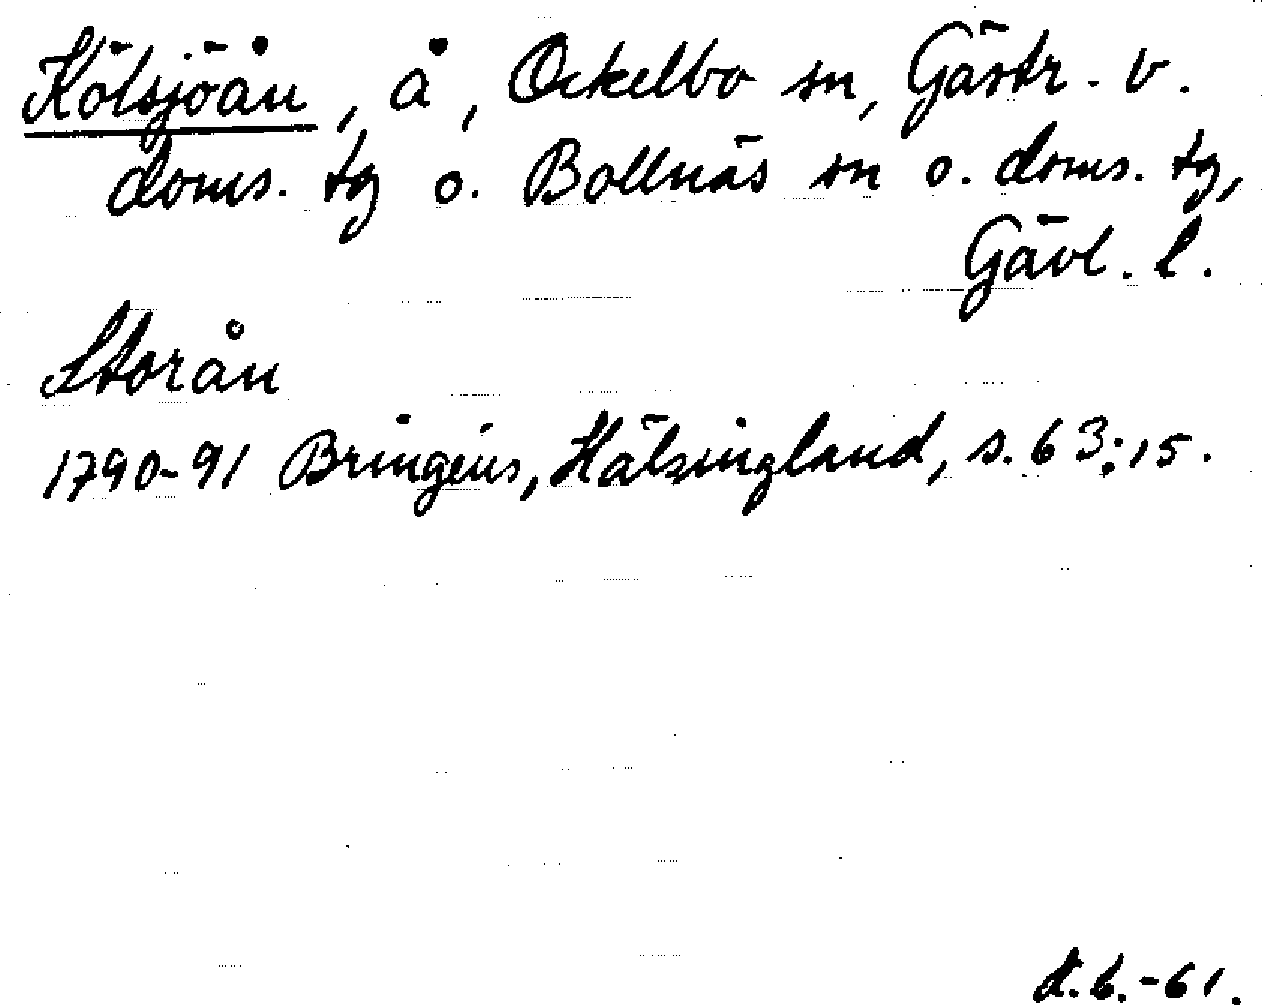 Kölsjöån, å, Ockelbo sn, Gästr. v.
doms. tg o. Bollnäs sn o. doms. tg,
Gävl. l.
Storån
1790-91 Bringéus, Hälsingland, s. 63:15.
d.b.-61.